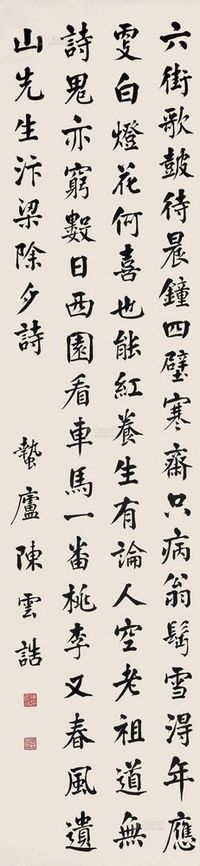 六街歌鼓待晨鐘四壁寒齋只病翁鬢雪得年應
更白燈花何喜也能紅養生有論人空老祖道無
詩鬼亦窮數日西園看車馬一番桃李又春風遺
山先生汴梁除夕詩
蟄廬陳雲誥